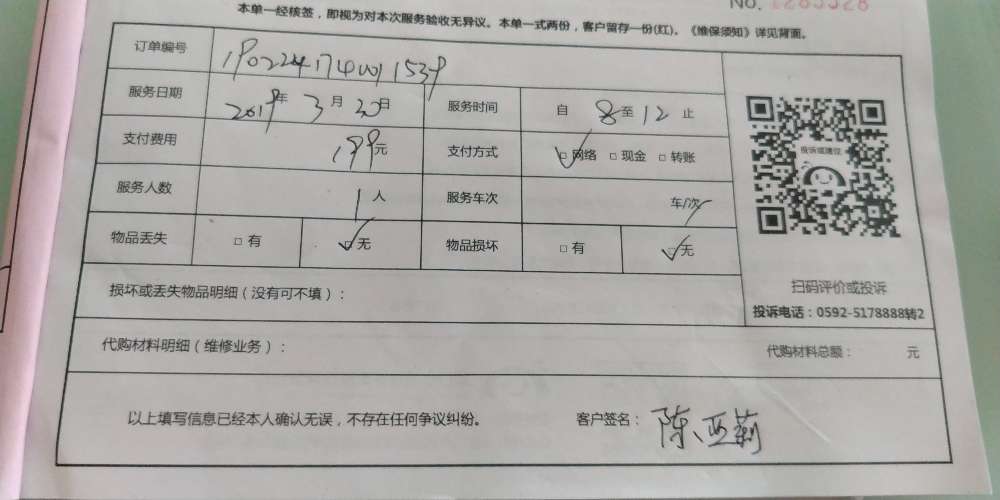 No. 1285328
本单一经核签，即视为对本次服务验收无异议。本单一式两份，客户留存一份(红)。《维保须知》详见背面。
订单编号
服务日期 2019年 3月 20日 服务时间 自 8 至 12 止
支付费用 199元 支付方式 □网络 □现金 □转账
服务人数 1人 服务车次 车/次
物品丢失 □有 □无 物品损坏 □有 □无
投诉或建议
扫码评价或投诉
投诉电话：0592-5178888转2
损坏或丢失物品明细（没有可不填）：
代购材料明细（维修业务）： 代购材料总额： 元
以上填写信息已经本人确认无误，不存在任何争议纠纷。 客户签名： 陈亚莉